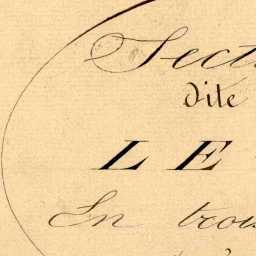 Sect
dite
LE
En trou